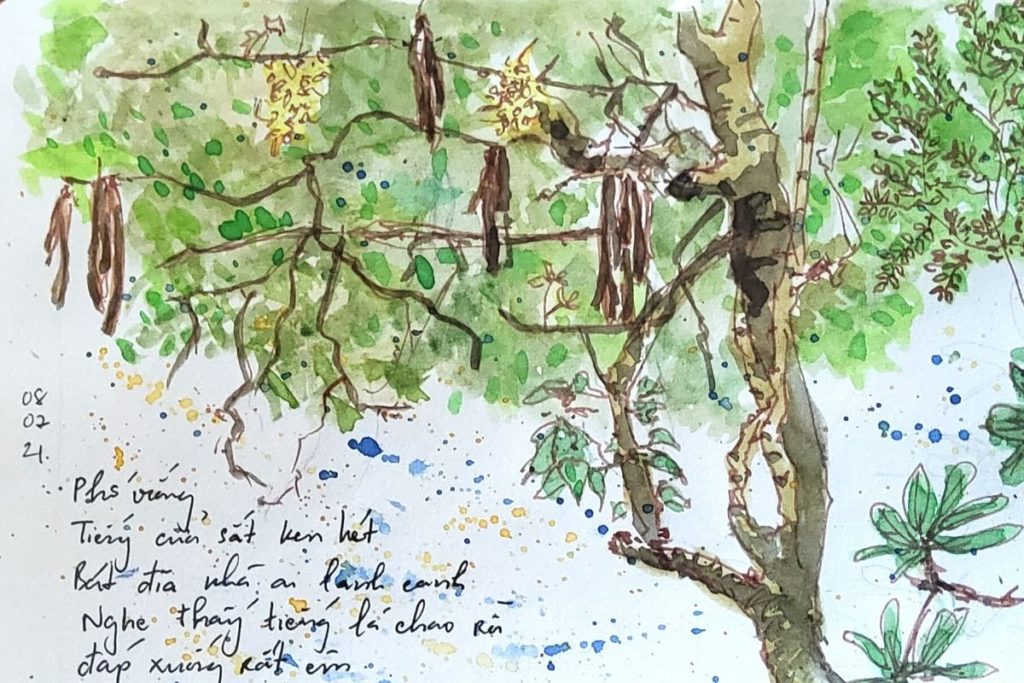 08
02
21.
Phố vắng
Tiếng cửa sắt ken két
Bát đĩa nhà ai lanh canh
Nghe thấy tiếng lá chao rồi
đáp xuống rất êm